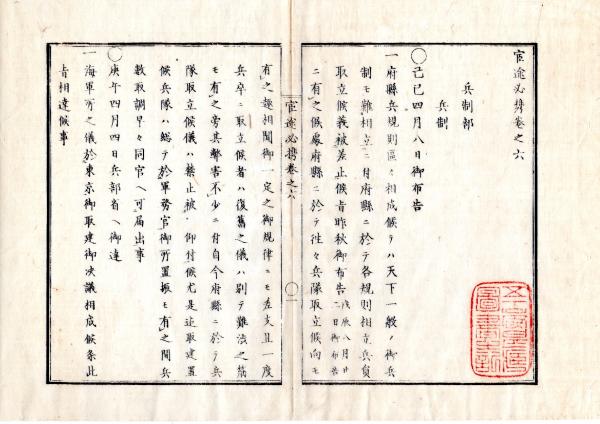 宦途必携巻之六
兵制部
兵制
○己巳四月八日御布告
一府縣兵規則區々相成候テハ天下一般ノ御兵
制モ難相立ニ付府縣ニ於テ各規則相立兵員
取立候義被差止候旨昨秋御布告戊辰八月廿二日御布告
ニ有之候處府縣ニ於テ往々兵隊取立候向モ
宦途必携巻之六
○一
有之趣相聞御一定之御規律ニモ差支且一度
兵卒ニ取立候者ハ復舊之儀ハ別テ難渋之筋
モ有之旁其弊害不少ニ付自今府縣ニ於テ兵
隊取立候儀ハ禁止被 仰付候尤是迄取建置
候兵隊ハ総テ於軍務官御所置振モ有之間兵
數取調早々同官ヘ可届出事
○庚午四月四日兵部省ヘ御達
一海軍所之儀於東京御取建御决議相成候条此
旨相達候事